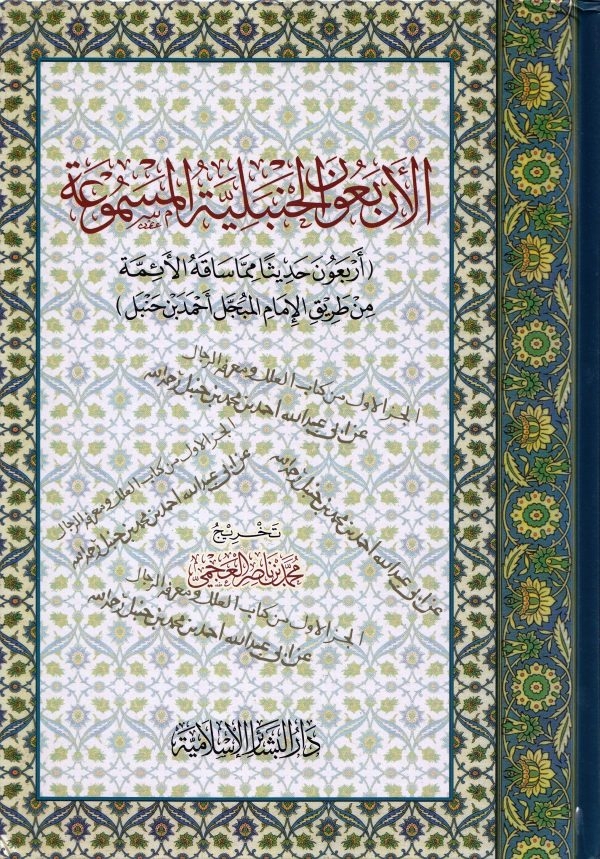 الأَرْبَعُونَ الحَنْبَلِيَّةُ المَسْمُوعَةُ
(أَرْبَعُونَ حَدِيثًا مِمَّا سَاقَهُ الأَئِمَّةُ
مِنْ طَرِيقِ الإِمَامِ المُبَجَّلِ أَحْمَدَ بْنِ حَنْبَل)
الجزء الاول من كتاب العلل ومعرفة الرجال
عن ابي عبد الله احمد بن محمد بن حنبل رحمه الله
الجزء الاول من كتاب العلل ومعرفة الرجال
عن ابي عبد الله احمد بن محمد بن حنبل رحمه الله
عن ابي عبد الله احمد بن محمد بن حنبل رحمه الله
تَخْرِيجُ
مُحَمَّد بْن نَاصِر العَجْمِيّ
الجزء الاول من كتاب العلل ومعرفة الرجال
عن ابي عبد الله احمد بن محمد بن حنبل رحمه الله
دَارُ البَشَائِرِ الإِسْلَامِيَّة